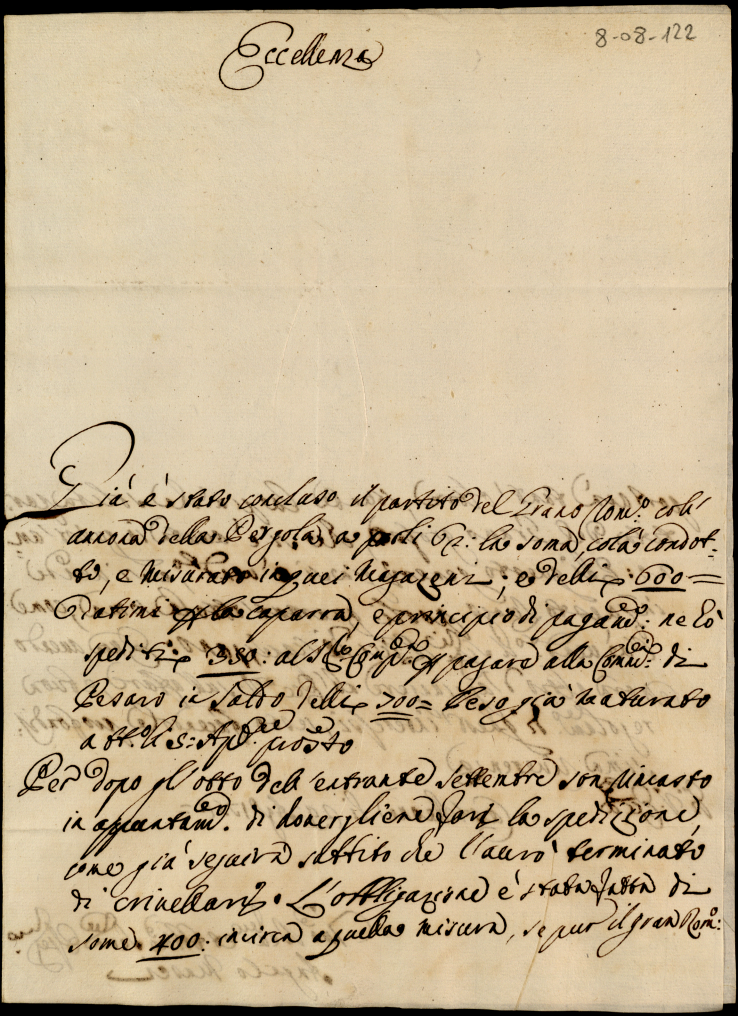 8-08-122
Eccellenza
Già è stato concluso il partito del Grano Rom:º coll'
annona della Pergola, a paoli 62: la soma, colà condot-
to, e misurato in quei Magazeni; e delli 600=
Datimi per la caparra, e principio di pagamto: ne hò
spediti 350: al per pagare alla Commtà: di
Pesaro in saldo delli 700= peso già maturato
a tt.º li 5: prossto
Per dopo gl'otto dell'entrante settembre son rimasto
in appuntamto. di dovergliene fare la spedizione,
come già seguirà subbito che l'aurò terminato
di crivellare. L'obbligazione è stata fatta di
some 400: incirca a quella misura, se pur il gran Rom:º